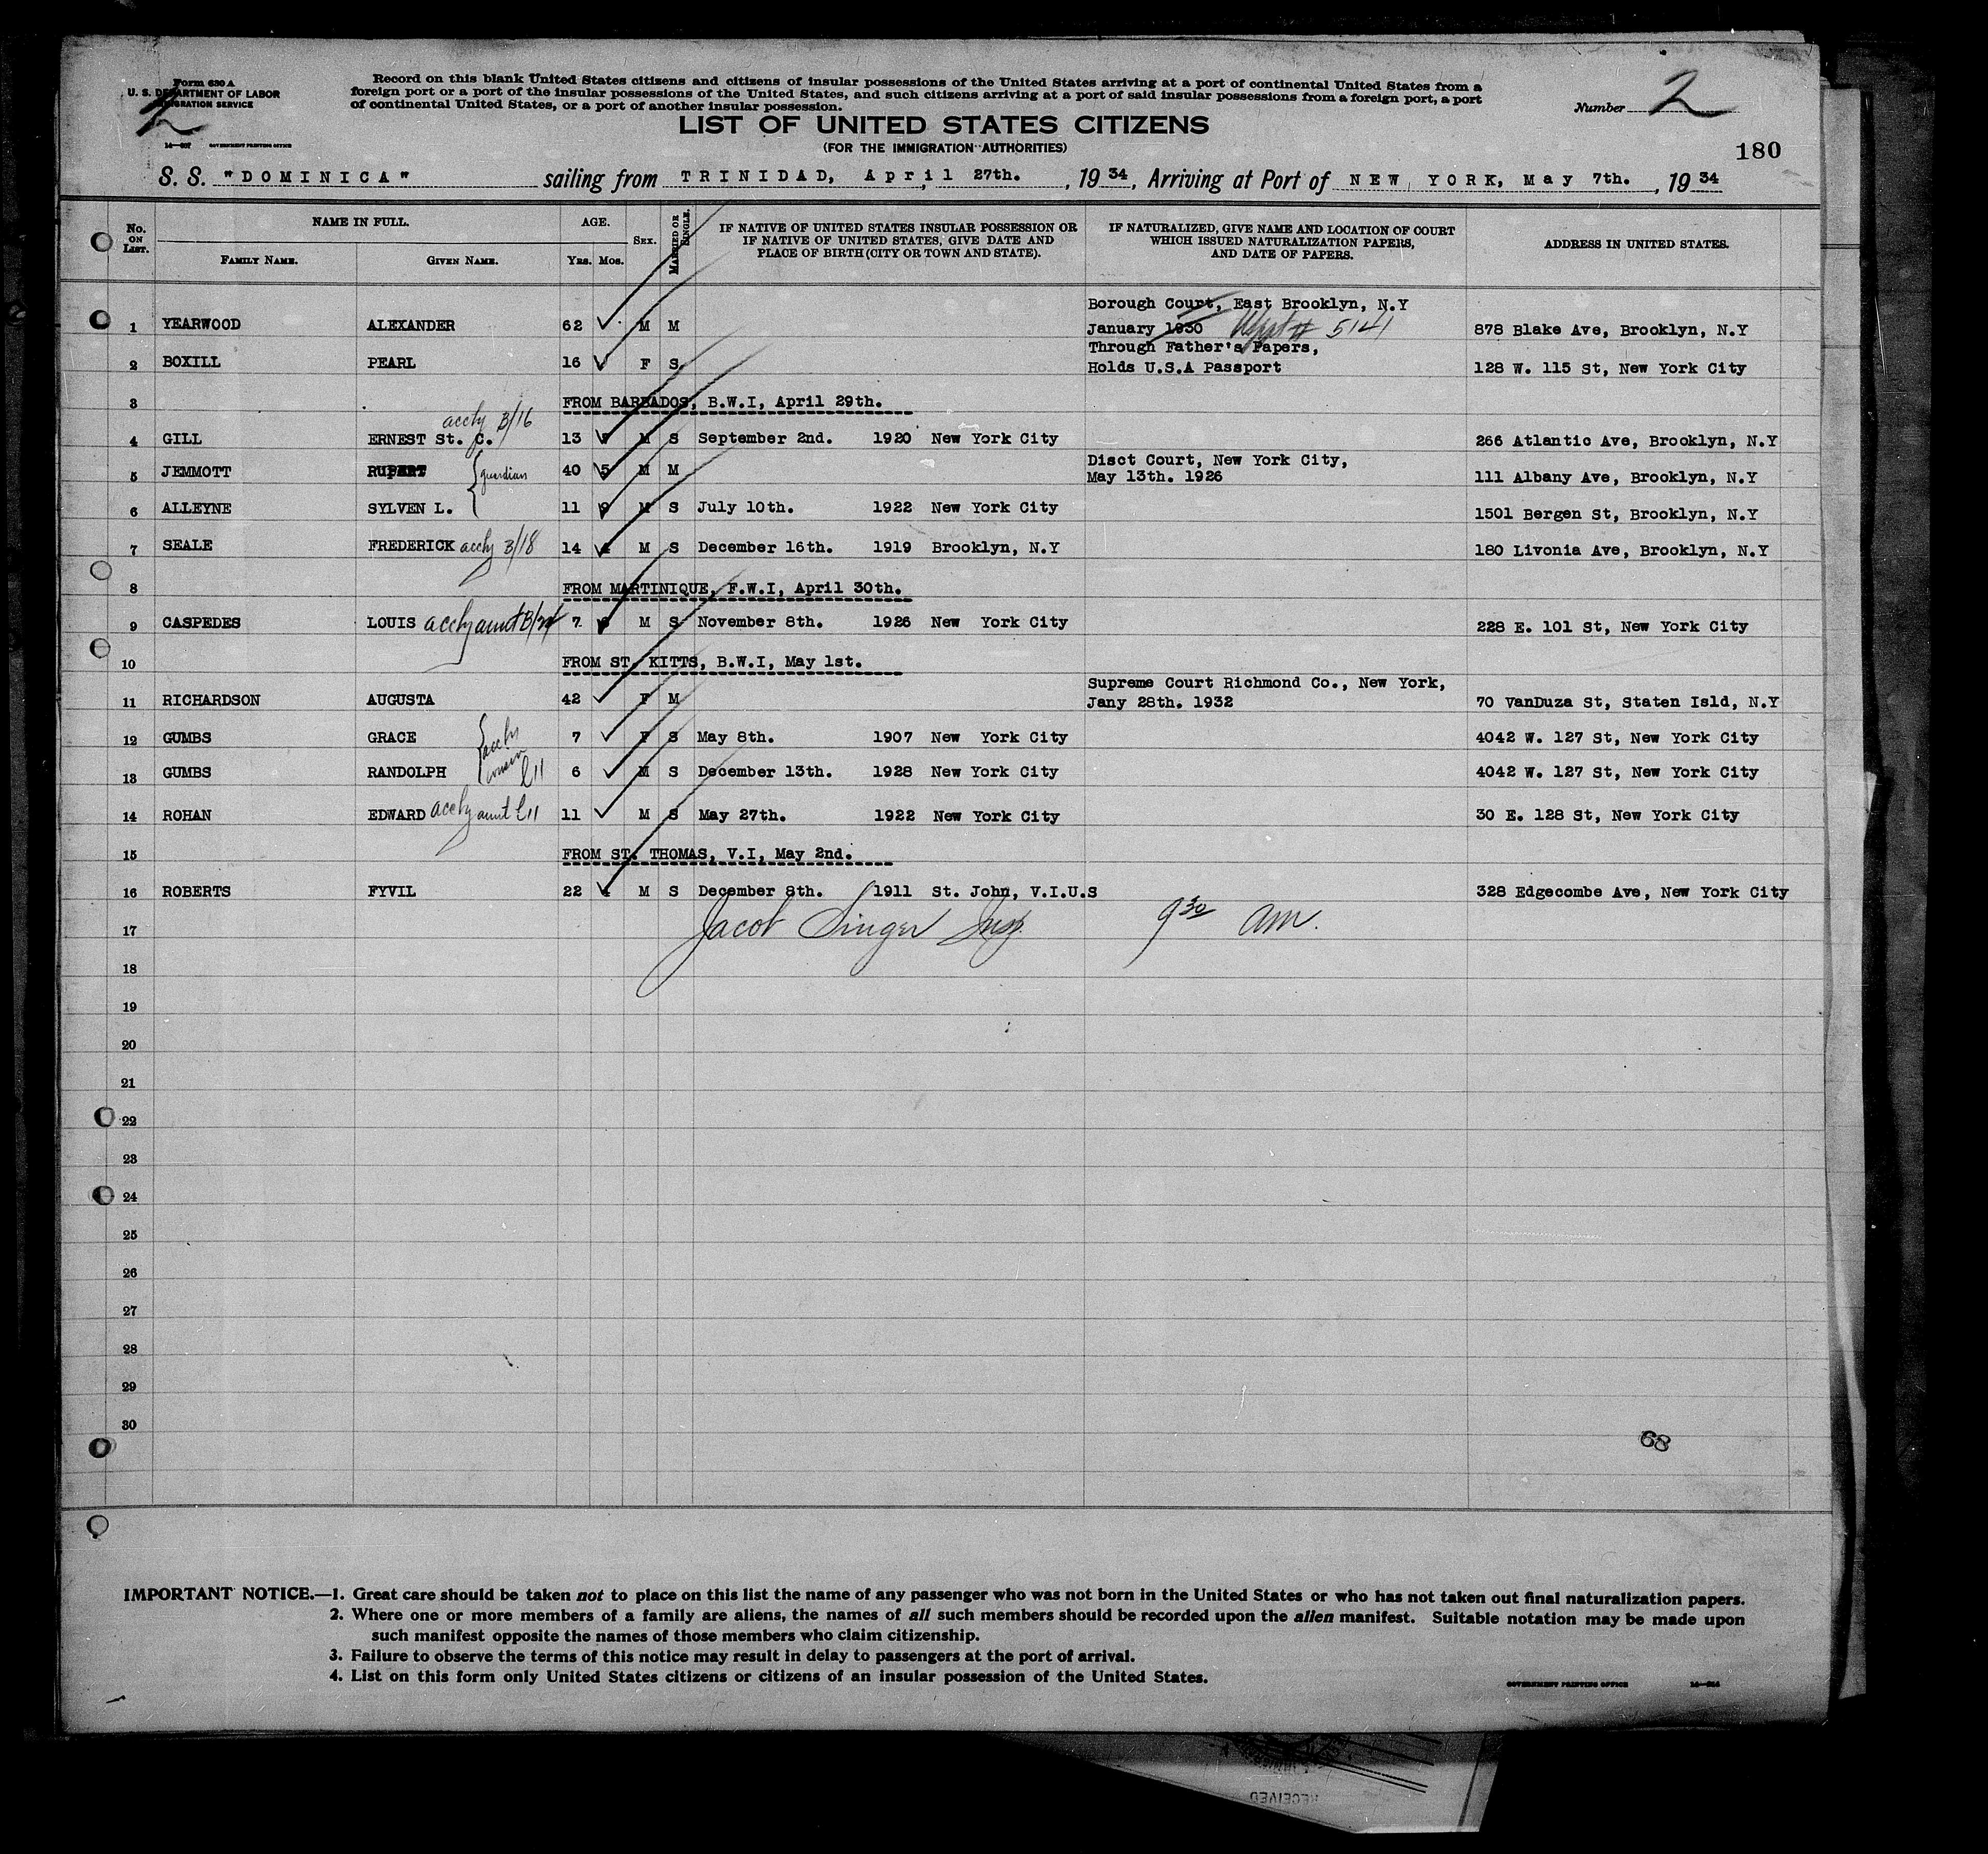 Form 630 A
U. S. DEPARTMENT OF LABOR
IMMIGRATION SERVICE
2
14—207 GOVERNMENT PRINTING OFFICE
Record on this blank United States citizens and citizens of insular possessions of the United States arriving at a port of continental United States from a
foreign port or a port of the insular possessions of the United States, and such citizens arriving at a port of said insular possessions from a foreign port, a port
of continental United States, or a port of another insular possession.
Number 2
LIST OF UNITED STATES CITIZENS
(FOR THE IMMIGRATION AUTHORITIES)
180
S. S. "DOMINICA" sailing from TRINIDAD, April 27th. , 1934, Arriving at Port of NEW YORK, May 7th. , 1934
No. ON LIST. NAME IN FULL. FAMILY NAME. GIVEN NAME. AGE. YRS. MOS. SEX. MARRIED OR SINGLE. IF NATIVE OF UNITED STATES INSULAR POSSESSION OR IF NATIVE OF UNITED STATES, GIVE DATE AND PLACE OF BIRTH (CITY OR TOWN AND STATE). IF NATURALIZED, GIVE NAME AND LOCATION OF COURT WHICH ISSUED NATURALIZATION PAPERS, AND DATE OF PAPERS. ADDRESS IN UNITED STATES.
Borough Court, East Brooklyn, N.Y
1 YEARWOOD ALEXANDER 62 M M January 1930 # 5141 878 Blake Ave, Brooklyn, N.Y
Through Father's Papers,
2 BOXILL PEARL 16 F S Holds U.S.A Passport 128 W. 115 St, New York City
3 FROM BARBADOS, B.W.I, April 29th.
accby B/16
4 GILL ERNEST St. C. 13 M S September 2nd. 1920 New York City 266 Atlantic Ave, Brooklyn, N.Y
Disct Court, New York City,
5 JEMMOTT RUPERT guardian 40 5 M M May 13th. 1926 111 Albany Ave, Brooklyn, N.Y
6 ALLEYNE SYLVEN L. 11 9 M S July 10th. 1922 New York City 1501 Bergen St, Brooklyn, N.Y
7 SEALE FREDERICK accby B/18 14 4 M S December 16th. 1919 Brooklyn, N.Y 180 Livonia Ave, Brooklyn, N.Y
8 FROM MARTINIQUE, F.W.I, April 30th.
9 CASPEDES LOUIS accby aunt 7 M S November 8th. 1926 New York City 228 E. 101 St, New York City
10 FROM ST. KITTS, B.W.I, May 1st.
Supreme Court Richmond Co., New York,
11 RICHARDSON AUGUSTA 42 F M Jany 28th. 1932 70 VanDuza St, Staten Isld, N.Y
12 GUMBS GRACE accby 7 F S May 8th. 1907 New York City 4042 W. 127 St, New York City
13 GUMBS RANDOLPH cousin L11 6 M S December 13th. 1928 New York City 4042 W. 127 St, New York City
14 ROHAN EDWARD accby aunt L11 11 M S May 27th. 1922 New York City 30 E. 128 St, New York City
15 FROM ST. THOMAS, V.I, May 2nd.
16 ROBERTS FYVIL 22 4 M S December 8th. 1911 St. John, V.I.U.S 328 Edgecombe Ave, New York City
17 Jacob Singer Insp. 9 30 am.
18
19
20
21
22
23
24
25
26
27
28
29
30
68
IMPORTANT NOTICE.—1. Great care should be taken not to place on this list the name of any passenger who was not born in the United States or who has not taken out final naturalization papers.
2. Where one or more members of a family are aliens, the names of all such members should be recorded upon the alien manifest. Suitable notation may be made upon
such manifest opposite the names of those members who claim citizenship.
3. Failure to observe the terms of this notice may result in delay to passengers at the port of arrival.
4. List on this form only United States citizens or citizens of an insular possession of the United States.
GOVERNMENT PRINTING OFFICE
RECEIVED